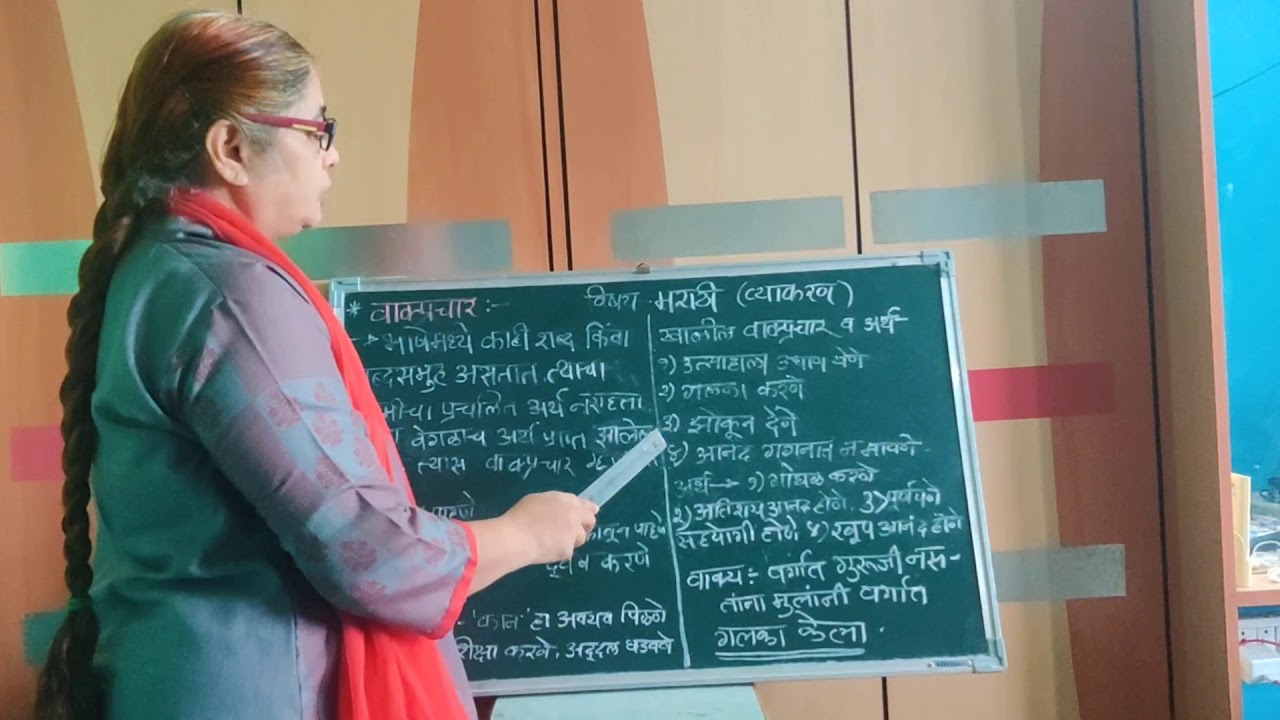 विषय मराठी (व्याकरण)
* वाक्प्रचार :-
→ भाषेमध्ये काही शब्द किंवा
ब्दसमुह असतात त्याचा
मीचा प्रचलित अर्थ नसहता
वेगळाच अर्थ प्राप्त झालेल
त्यास वाक्प्रचार म्ह
करणे
'कान' हा अवयव पिळणे
अद्दल घडवणे
खालील वाक्प्रचार व अर्थ
१) उत्साहाला उधाण येणे
२) गलका करणे
३) झोकून देणे
४) आनंद गगनात न मावणे
अर्थ → १) गोंधळ करणे
२) अतिशय आनंद होणे ३) पूर्णपणे
सहयोगी होणे ४) खूप आनंद होणे
वाक्य :- वर्गात गुरूजी नस-
तांना मुलांनी वर्गात
गलका केला.